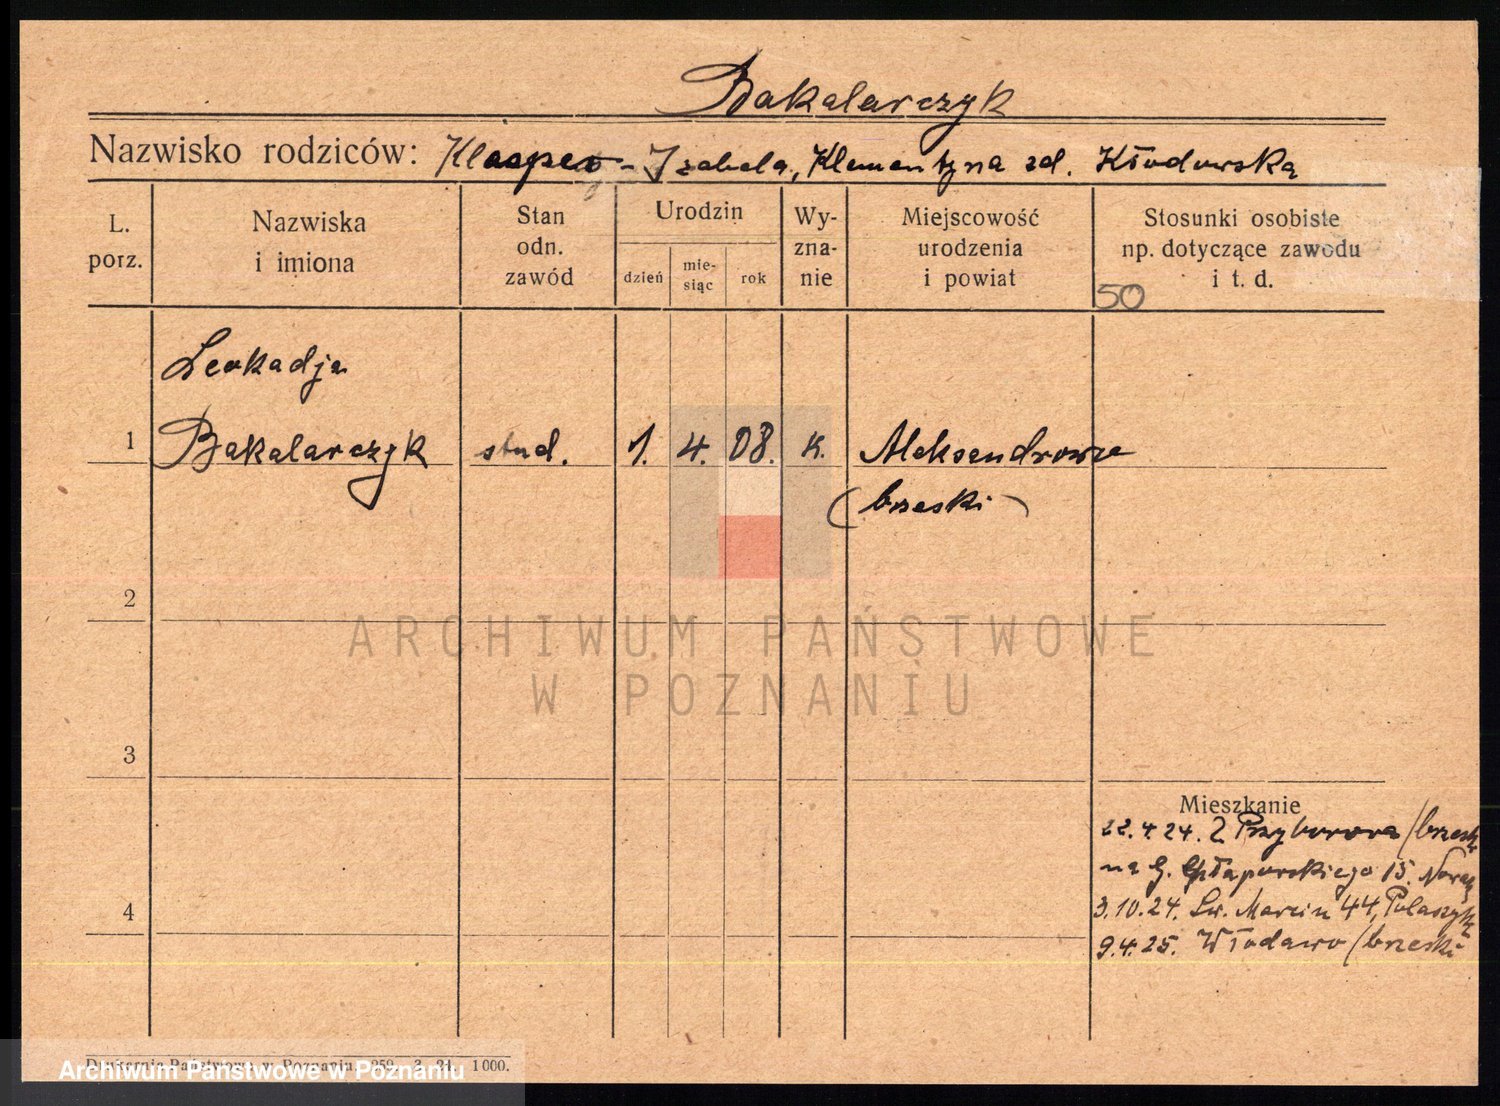 Bakalarczyk
Nazwisko rodziców: Izabela, Klementyna zd. Kłodowska
L. porz.
Nazwiska i imiona
Stan odn. zawód
Urodzin
dzień
mie-siąc
rok
Wy-zna-nie
Miejscowość urodzenia i powiat
Stosunki osobiste np. dotyczące zawodu i t. d.
50
Leokadja
1 Bakalarczyk stud. 1. 4. 08. K. Aleksandrowie
(brzeski)
2
ARCHIWUM PAŃSTWOWE
W POZNANIU
3
Mieszkanie
22.4.24. Z Przyborowa /brzeski
na G. 15.
4
3.10.24. Św. Marcin 44,
9.4.25. Włodawo /brzeski
Drukarnia Państwowa w Poznaniu 3. 24. 1000.
Archiwum Państwowe w Poznaniu